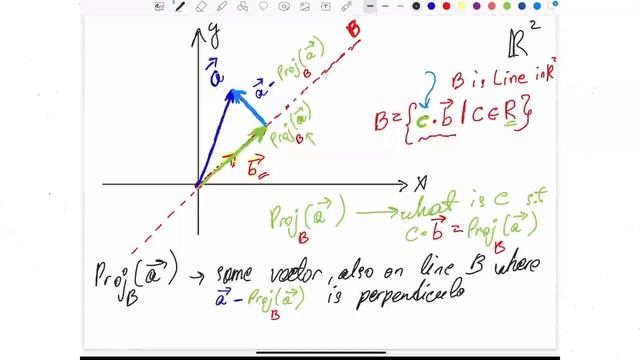 y
B
ℝ²
a⃗
a⃗ - Proj_B(a⃗)
B is Line in ℝ²
Proj_B(a⃗)
B = { c · b⃗ | C ∈ ℝ }
b⃗
x
Proj_B(a⃗) → what is c s.t
c · b⃗ = Proj_B(a⃗)
Proj_B(a⃗) → some vector, also on line B where
a⃗ - Proj_B(a⃗) is perpendicula